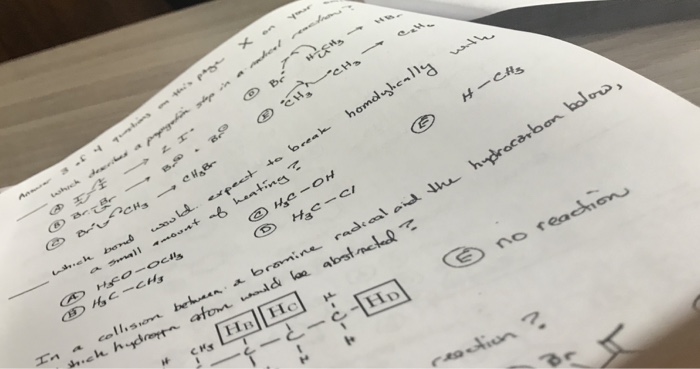 Answer 3 of 4 questions on this page X on your
which describes a propagation step in a radical reaction?
(A) I-I → 2 I•
(B) Br-Br → Br + Br
(C) Br CH3 → CH3Br
(D) Br• H-CH3 → HBr
(E) •CH3 •CH3 → C2H6
which bond would expect to break homolytically with
a small amount of heating?
(A) H3CO-OCH3
(B) H3C-CH3
(C) H3C-OH
(D) H3C-Cl
(E) H-CH3
In a collision between a bromine radical and the hydrocarbon below,
which hydrogen atom would be abstracted?
HB HC HD
H CH3 H
C-C-C
H H
(E) no reaction
reaction?
Br